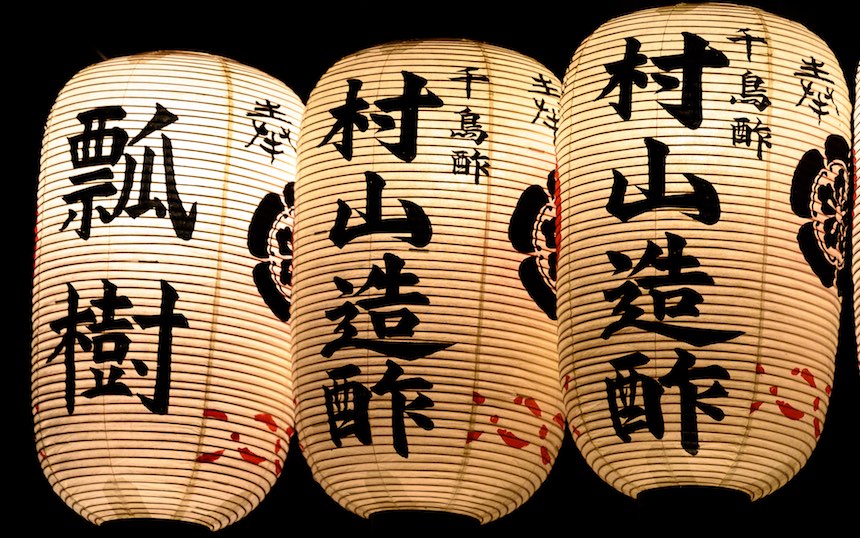 瓢樹
千鳥酢
村山造酢
千鳥酢
村山造酢